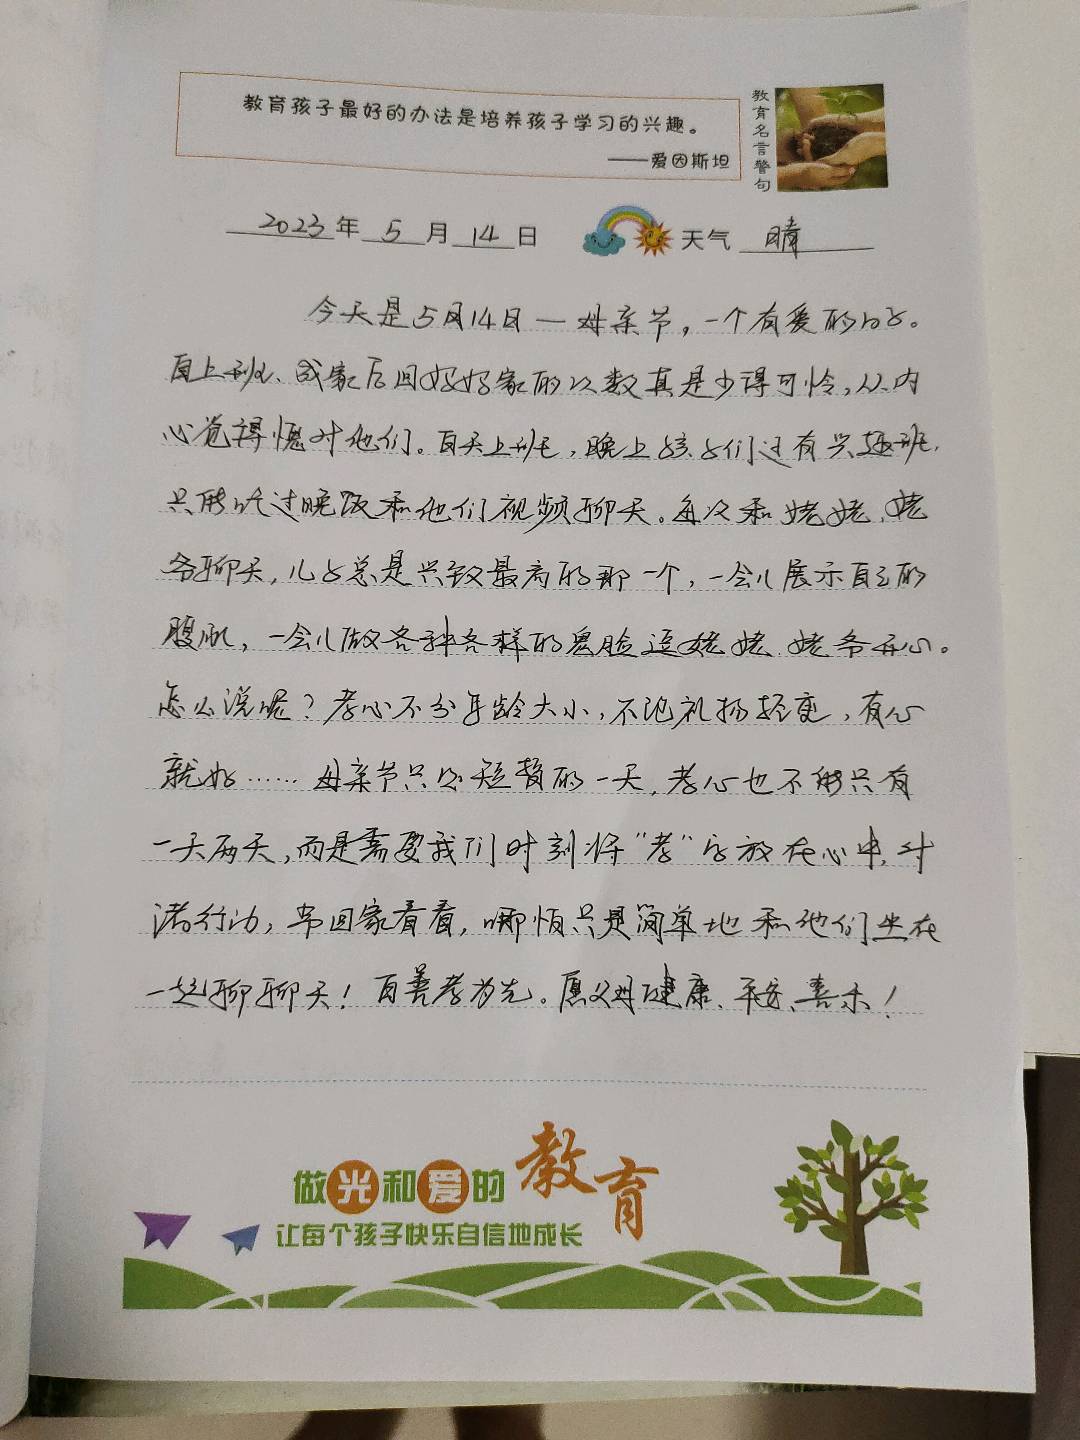 教育孩子最好的办法是培养孩子学习的兴趣。
——爱因斯坦
教育名言警句
2023年 5月 14日 天气 晴
今天是5月14日—母亲节，一个有爱的日子。
自上班、成家后回妈妈家的次数真是少得可怜，从内
心觉得愧对他们。白天上班，晚上孩子们还有兴趣班，
只能吃过晚饭和他们视频聊天。每次和姥姥、姥
爷聊天，儿子总是兴致最高的那一个，一会儿展示自己的
腹肌，一会儿做各种各样的鬼脸逗姥姥、姥爷开心。
怎么说呢？孝心不分年龄大小，不论礼物轻重，有心
就好……母亲节只是短暂的一天，孝心也不能只有
一天两天，而是需要我们时刻将“孝”字放在心中，付
诸行动，常回家看看，哪怕只是简单地和他们坐在
一起聊聊天！百善孝为先。愿父母健康、平安、喜乐！
做光和爱的教育
让每个孩子快乐自信地成长